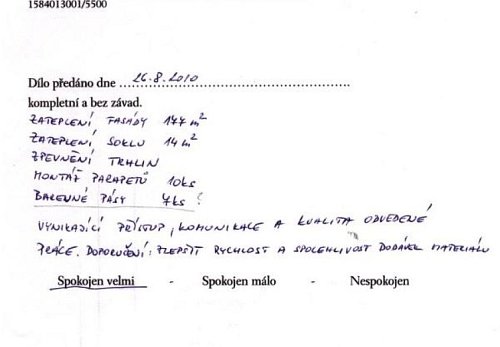 1584013001/5500
Dílo předáno dne 26.8.2010
kompletní a bez závad.
ZATEPLENÍ FASÁDY 177 m²
ZATEPLENÍ SOKLU 14 m²
ZPEVNĚNÍ TRHLIN
MONTÁŽ PARAPETŮ 10ks
BAREVNÉ PÁSY 7ks
VYNIKAJÍCÍ PŘÍSTUP, KOMUNIKACE A KVALITA ODVEDENÉ
PRÁCE. DOPORUČENÍ: ZLEPŠIT RYCHLOST A SPOLEHLIVOST DODÁVEK MATERIÁLU
Spokojen velmi - Spokojen málo - Nespokojen